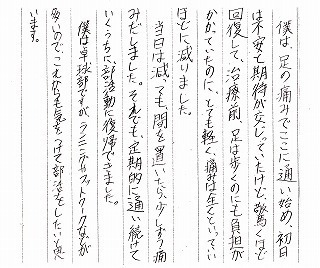 僕は、足の痛みでここに通い始め、初日
は不安と期待が交じっていたけど、驚くほど
回復して、治療前、足は歩くのにも負担が
かかっていたのに、とても軽く、痛みは全くといっていい
ほどに減りました。
当日は減っても、間を置いたら、少しずつ痛
みだしました。それでも、定期的に通い続けて
いくうちに、部活動に復帰できました。
僕は卓球部ですが、ランニングやフットワークなどが
多いので、これからも気をつけて部活をしたいと思
います。